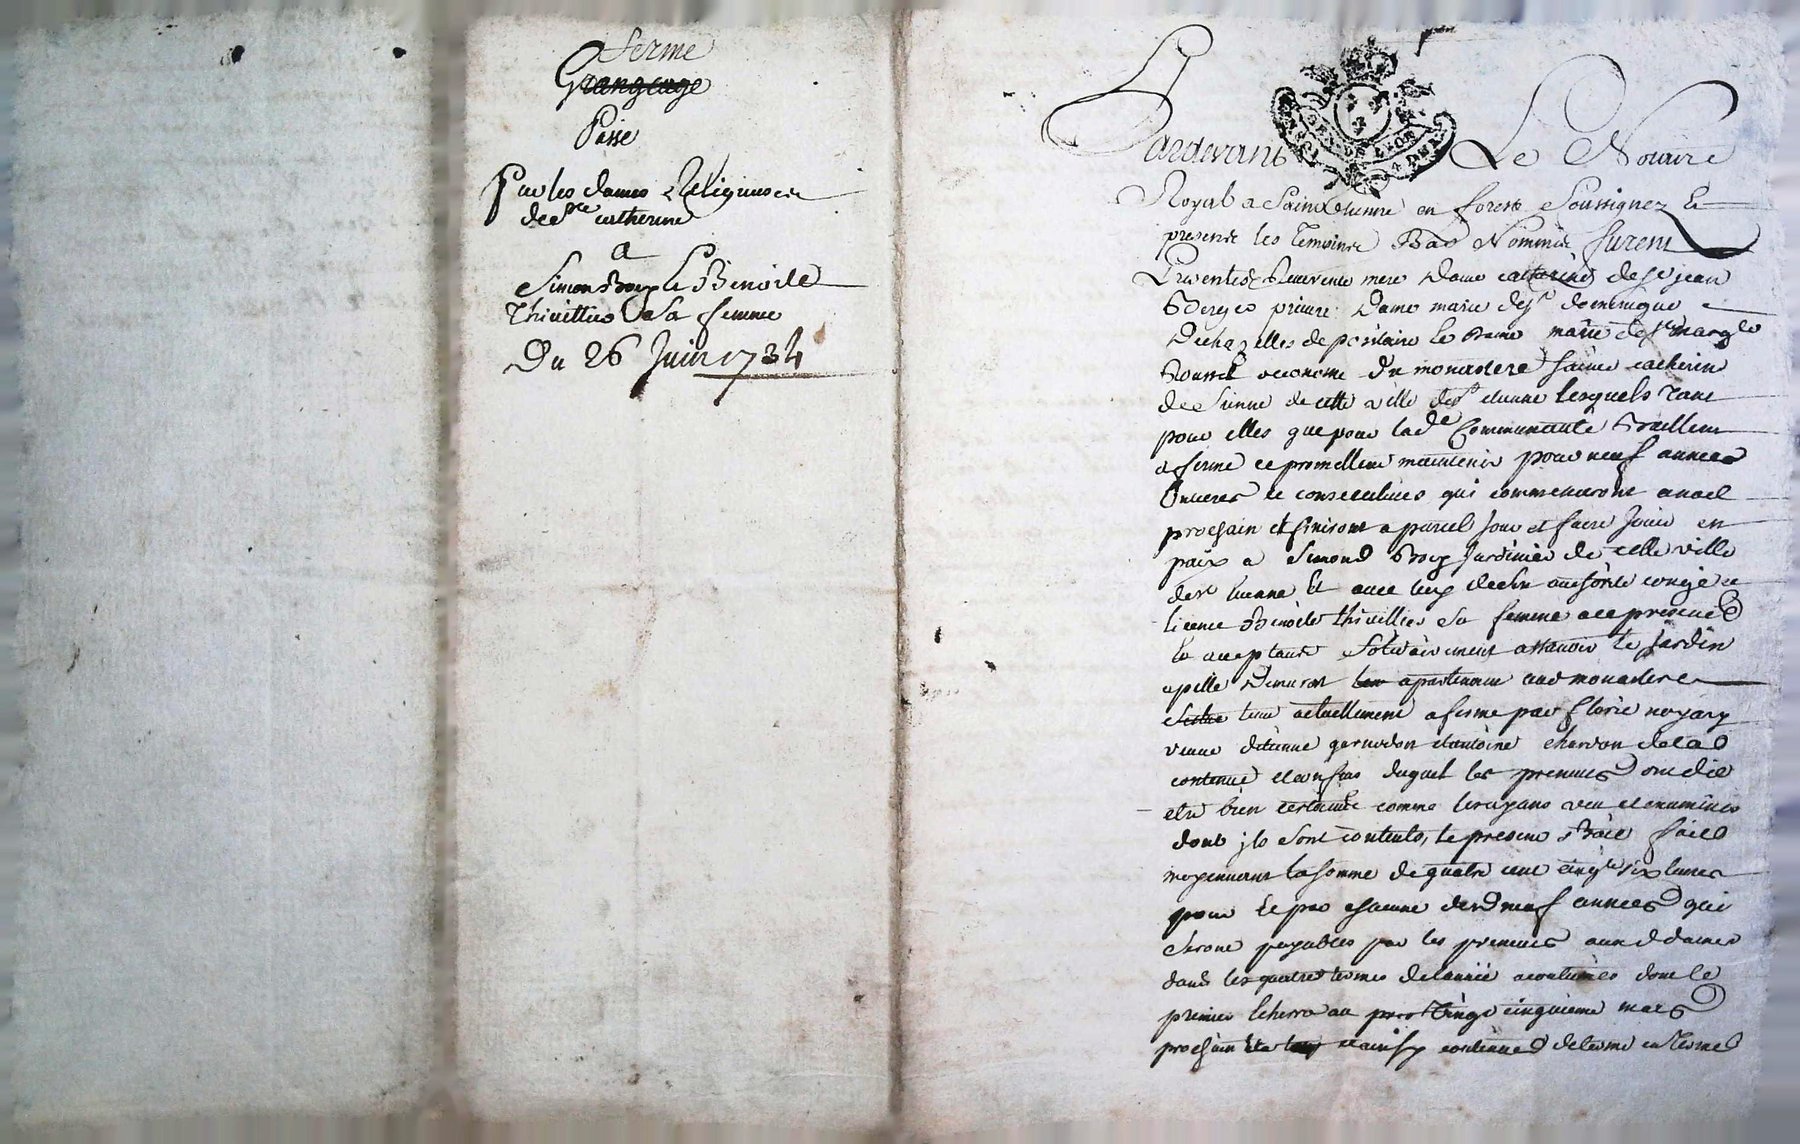 ferme
Grangeage
Passe
Par les dames Religieuses
de Ste catherine
A
Simon Boy & Benoite
Thivillier Sa femme
Du 26 Juin 1734
GEN DE LYON
Pardevant Le Notaire
Royal a Saint Etienne en forest Soussignez &
presents les temoins Bas Nommés furent
Presentes Reverente mere Dame catherine de St jean
prieure Dame marie de St dominique
Dechazelles depositaire & Dame marie de Ste Marg te
œconome Du monastere sainte catherine
de Sienne de cette ville de St etienne lesquels tant
pour elles que pour lad e Communauté Baillent
a ferme et promettent maintenir pour neuf années
Entieres et consecutives qui commenceront a noel
prochain et finiront a pareil jour et faire jouir en
paix a Simond Boy Jardinier de cette ville
de St etienne & avec luy de luy authorisée congé et
licence Benoite thivillier Sa femme a ce presents
& acceptants Solidairement assavoir le jardin
apellé apartenant aud monastere
tenu actuellement a ferme par florie
veuve d'etienne et antoine chardon de la
contenue et confins duquel les preneurs ont dit
etre bien certains comme l'ayans veu et examiné
dont ils sont contents, le present Bail fait
moyennant la somme de quatre cent cinq te six livres
pour le prix chacune desd neuf années qui
seront payables par les preneurs auxd dames
dans les quatre termes de l'année acoutumés dont le
premier echerra au vingt cinquieme mars
prochain et ainsy continuer de terme en terme